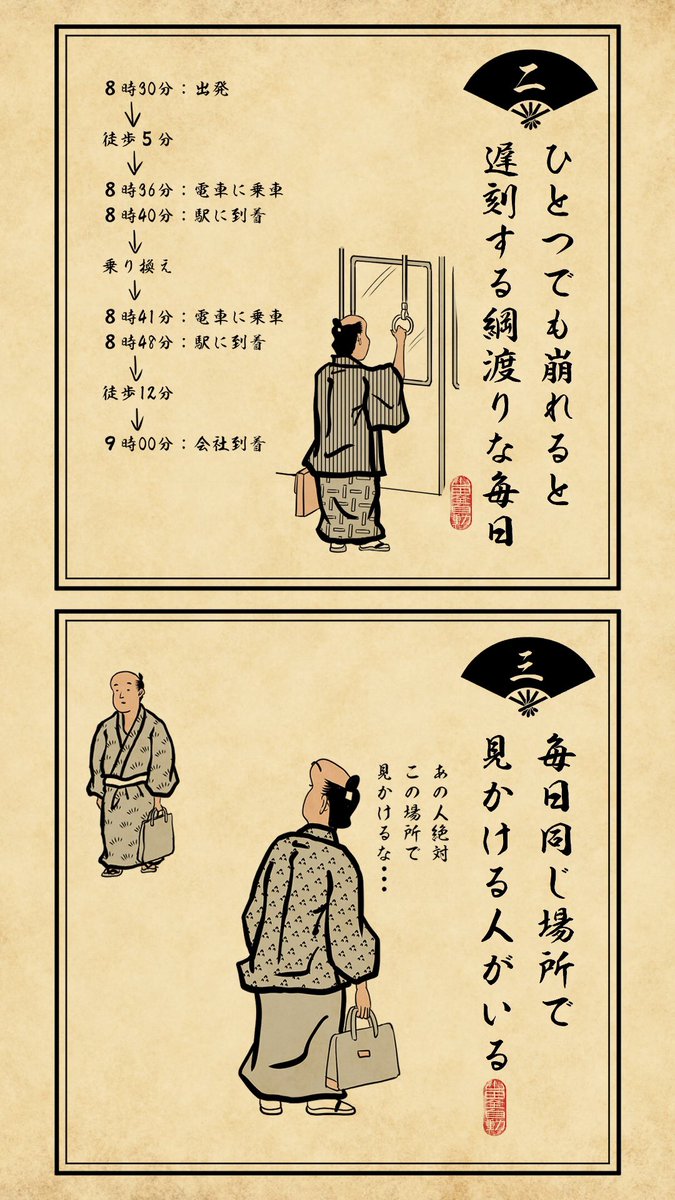 二
ひとつでも崩れると
遅刻する綱渡りな毎日
8時30分：出発
↓
徒歩5分
↓
8時36分：電車に乗車
8時40分：駅に到着
↓
乗り換え
↓
8時41分：電車に乗車
8時48分：駅に到着
↓
徒歩12分
↓
9時00分：会社到着
三
毎日同じ場所で
見かける人がいる
あの人絶対
この場所で
見かけるな・・・